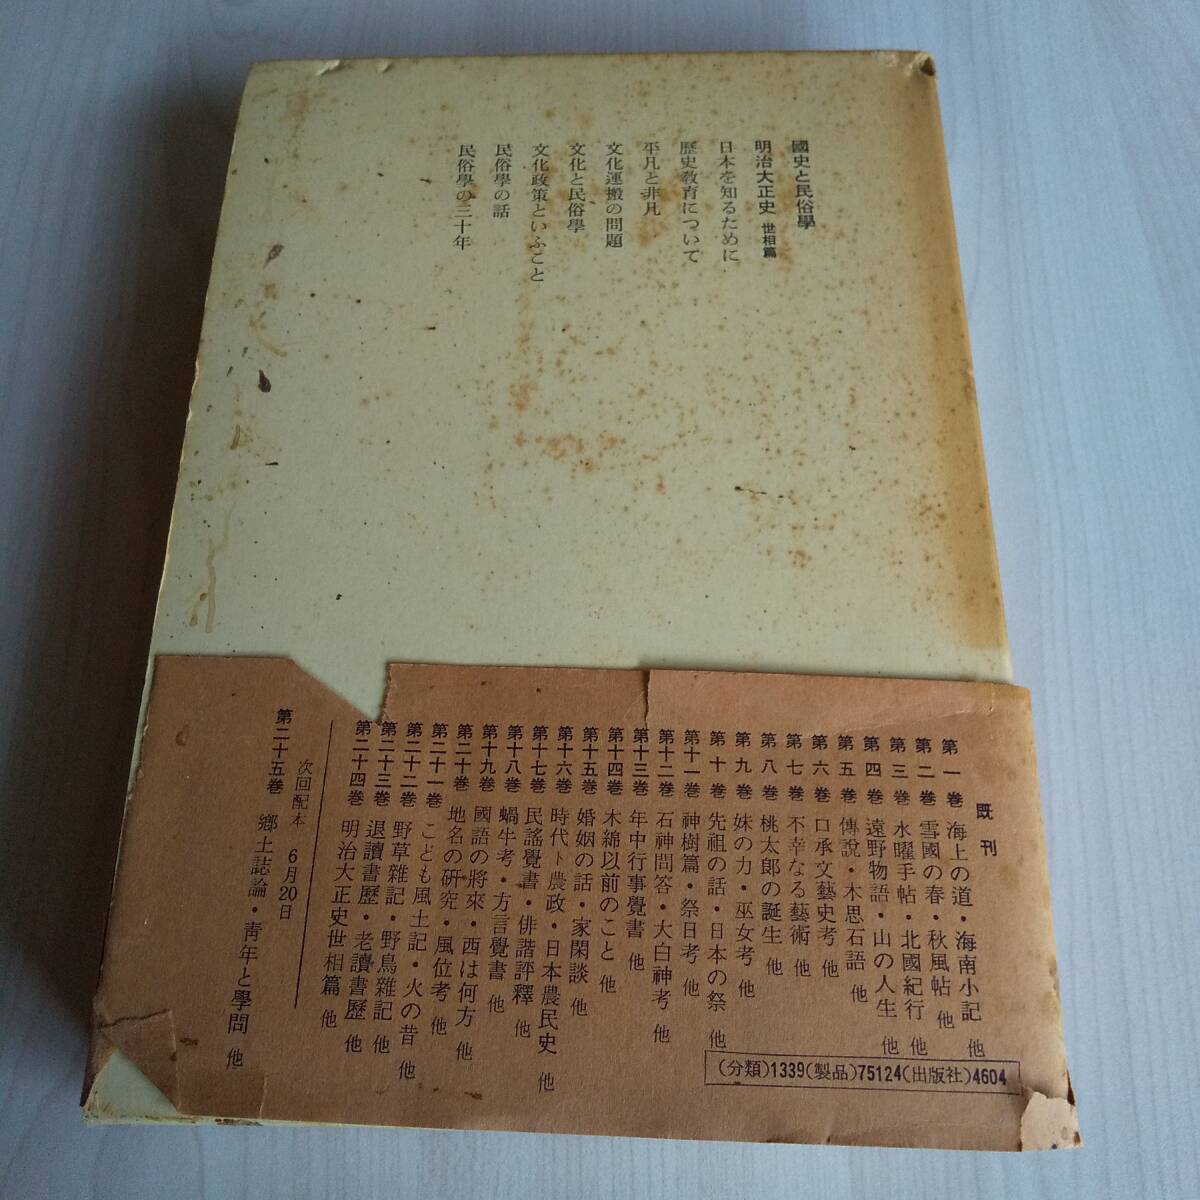 國史と民俗學
明治大正史 世相篇
日本を知るために
歴史教育について
平凡と非凡
文化運搬の問題
文化と民俗學
文化政策といふこと
民俗學の話
民俗學の三十年
既刊
第一巻 海上の道・海南小記 他
第二巻 雪國の春・秋風帖 他
第三巻 水曜手帖・北國紀行 他
第四巻 遠野物語・山の人生 他
第五巻 傳説・木思石語 他
第六巻 口承文藝史考 他
第七巻 不幸なる藝術 他
第八巻 桃太郎の誕生 他
第九巻 妹の力・巫女考 他
第十巻 先祖の話・日本の祭 他
第十一巻 神樹篇・祭日考 他
第十二巻 石神問答・大白神考 他
第十三巻 年中行事覺書 他
第十四巻 木綿以前のこと 他
第十五巻 婚姻の話・家閑談 他
第十六巻 時代ト農政・日本農民史 他
第十七巻 民謠覺書・俳諧評釋 他
第十八巻 蝸牛考・方言覺書 他
第十九巻 國語の將來・西は何方 他
第二十巻 地名の研究・風位考 他
第二十一巻 こども風土記・火の昔 他
第二十二巻 野草雜記・野鳥雜記 他
第二十三巻 退讀書歷・老讀書歷 他
第二十四巻 明治大正史世相篇 他
次回配本 6月20日
第二十五巻 鄕土誌論・青年と學問 他
(分類)1339(製品)75124(出版社)4604